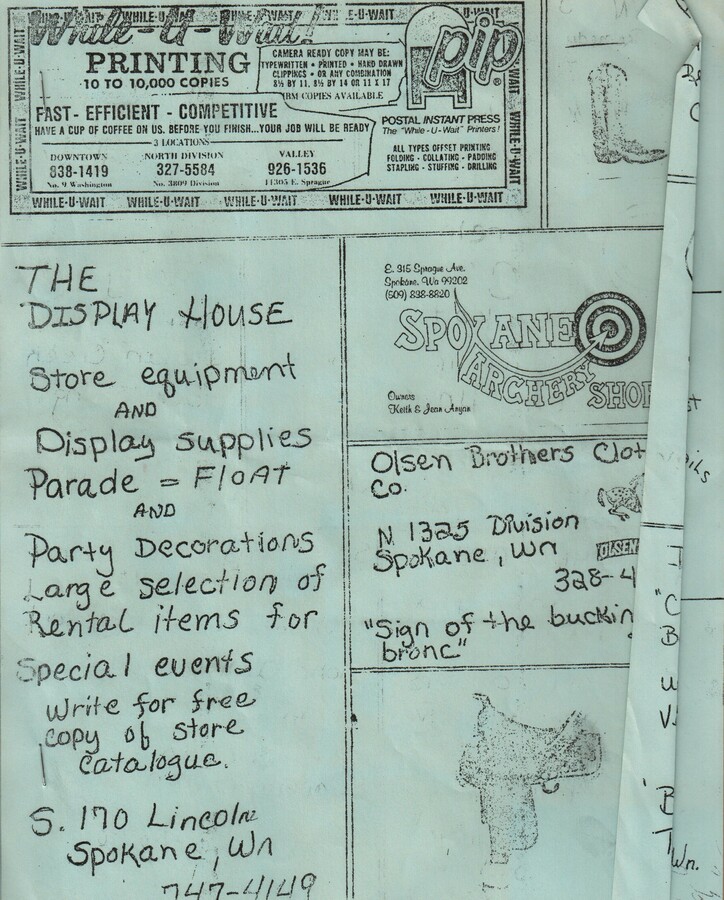 WHILE-U-WAIT
While-U-Wait!
PRINTING
10 TO 10,000 COPIES
CAMERA READY COPY MAY BE:
TYPEWRITTEN • PRINTED • HAND DRAWN
CLIPPINGS • OR ANY COMBINATION
8½ BY 11, 8½ BY 14 OR 11 X 17
IBM COPIES AVAILABLE
pip®
FAST - EFFICIENT - COMPETITIVE
HAVE A CUP OF COFFEE ON US. BEFORE YOU FINISH...YOUR JOB WILL BE READY
3 LOCATIONS
DOWNTOWN NORTH DIVISION VALLEY
838-1419 327-5584 926-1536
No. 9 Washington No. 3809 Division 11305 E. Sprague
POSTAL INSTANT PRESS
The "While-U-Wait" Printers!
ALL TYPES OFFSET PRINTING
FOLDING - COLLATING - PADDING
STAPLING - STUFFING - DRILLING
WHILE-U-WAIT WHILE-U-WAIT WHILE-U-WAIT WHILE-U-WAIT WHILE-U-WAIT
THE
DISPLAY HOUSE
Store equipment
AND
Display supplies
Parade = FLOAT
AND
Party Decorations
Large selection of
Rental items for
Special events
Write for free
copy of store
Catalogue.
S. 170 Lincoln
Spokane, Wn
747-4149
E. 315 Sprague Ave.
Spokane, Wa 99202
(509) 838-8820
SPOKANE
ARCHERY SHOP
Owners
Keith & Jean Anyan
Olsen Brothers Clot
Co.
N 1325 Division
Spokane, Wn
OLSEN
328-4
"Sign of the buckin
bronc"
Wn.